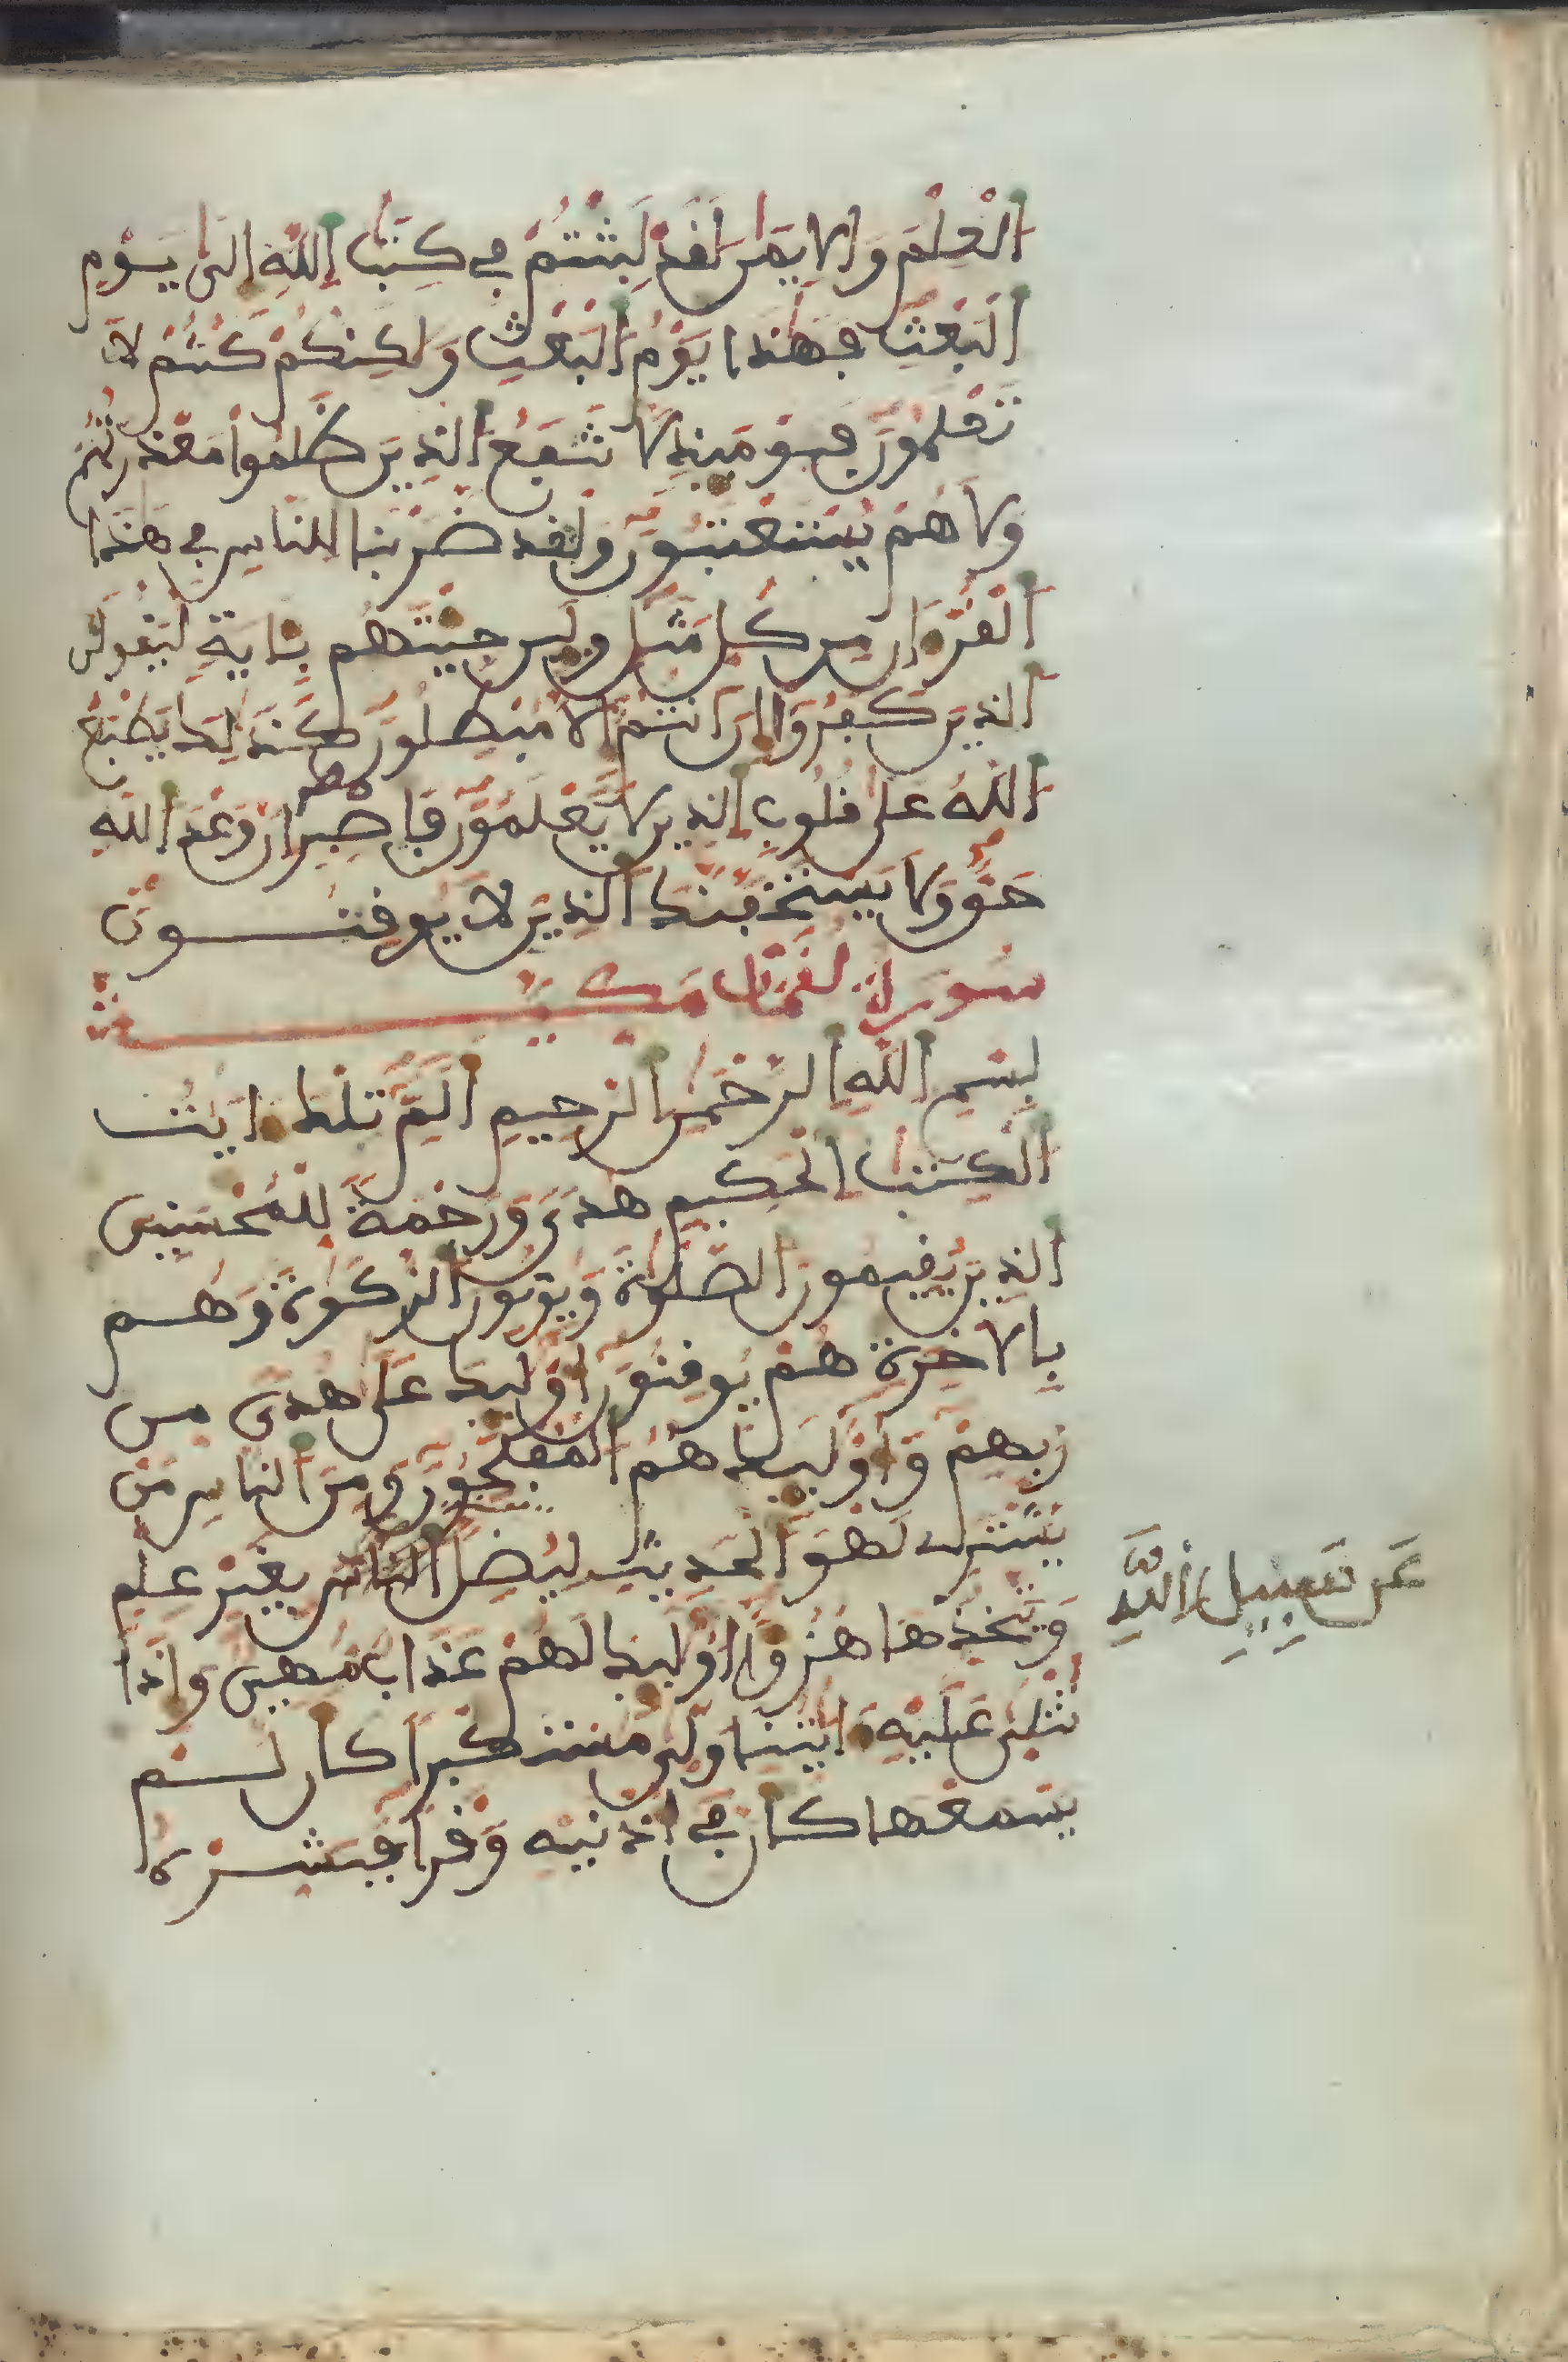 الْعِلْمَ وَالِايمَٰنَ لَقَدْ لَبِثْتُمْ فِي كِتَٰبِ اللَّهِ إِلَىٰ يَوْمِ
الْبَعْثِ فَهَٰذَا يَوْمُ الْبَعْثِ وَلَٰكِنَّكُمْ كُنتُمْ لَا
تَعْلَمُونَ فَيَوْمَئِذٍ لَا تَنفَعُ الذِينَ ظَلَمُوا مَعْذِرَتُهُمْ
وَلَا هُمْ يُسْتَعْتَبُونَ وَلَقَدْ ضَرَبْنَا لِلنَّاسِ فِي هَٰذَا
الْقُرْءَانِ مِن كُلِّ مَثَلٍ وَلَئِن جِئْتَهُم بِـَٔايَةٍ لَّيَقُولَنَّ
الذِينَ كَفَرُوا إِنَ انتُمُ إِلَّا مُبْطِلُونَ كَذَٰلِكَ يَطْبَعُ
اللَّهُ عَلَىٰ قُلُوبِ الذِينَ لَا يَعْلَمُونَ فَاصْبِرِ انَّ وَعْدَ اللَّهِ
حَقٌّ وَلَا يَسْتَخِفَّنَّكَ الذِينَ لَا يُوقِنُونَ
سُورَة لقمٰن مكية
بِسْمِ اللَّهِ الرَّحْمَٰنِ الرَّحِيمِ الٓمٓ تِلْكَ ءَايَٰتُ
الْكِتَٰبِ الْحَكِيمِ هُدًى وَرَحْمَةً لِّلْمُحْسِنِينَ
الذِينَ يُقِيمُونَ الصَّلَوٰةَ وَيُوتُونَ الزَّكَوٰةَ وَهُم
بِالَاخِرَةِ هُمْ يُوقِنُونَ أُوْلَٰئِكَ عَلَىٰ هُدًى مِّن
رَّبِّهِمْ وَأُوْلَٰئِكَ هُمُ الْمُفْلِحُونَ وَمِنَ النَّاسِ مَن
يَشْتَرِي لَهْوَ الْحَدِيثِ لِيُضِلَّ النَّاسَ بِغَيْرِ عِلْمٍ
عَن سَبِيلِ اللَّهِ
وَيَتَّخِذُهَا هُزُؤًا اوْلَٰئِكَ لَهُمْ عَذَابٌ مُّهِينٌ وَإِذَا
تُتْلَىٰ عَلَيْهِ ءَايَٰتُنَا وَلَّىٰ مُسْتَكْبِرًا كَأَن لَّمْ
يَسْمَعْهَا كَأَنَّ فِي أُذْنَيْهِ وَقْرًا فَبَشِّرْهُ